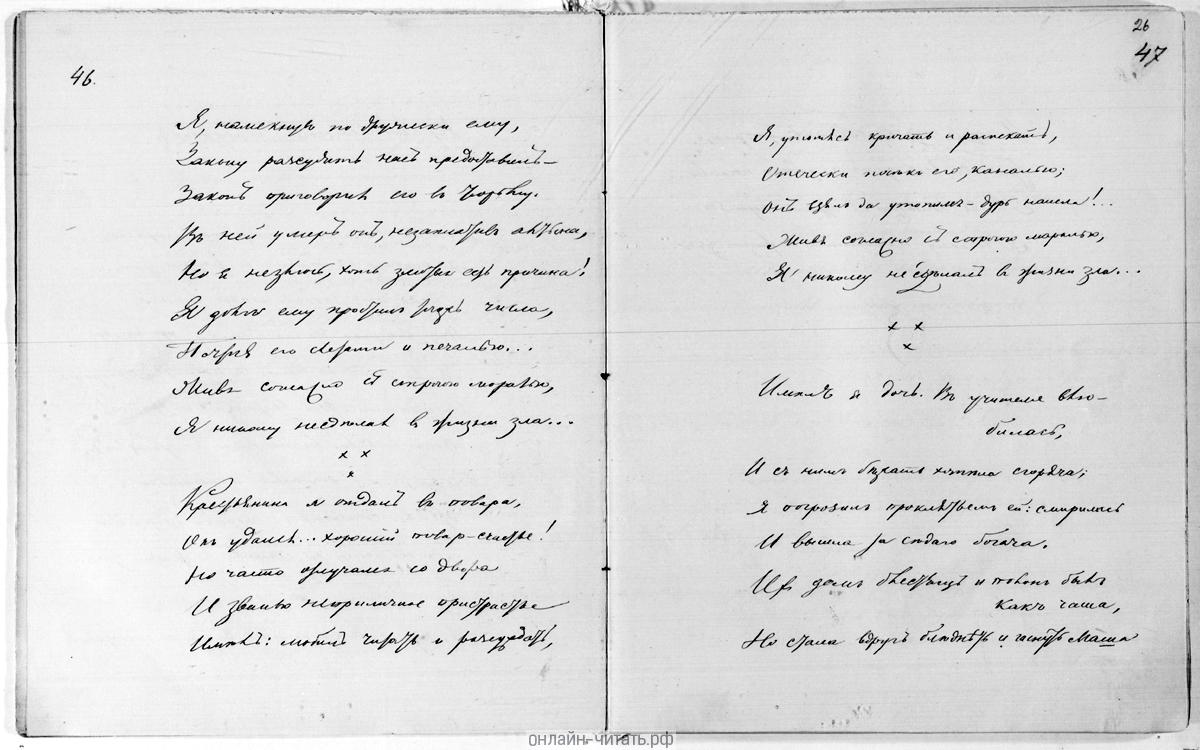 46.
Я, намекнувъ по дружески ему,
Закону разсудить насъ предоставилъ—
Законъ приговорилъ его въ тюрьму.
Въ ней умеръ онъ, незаплативъ алтына,
Но я незлюсь, хоть злиться есть причина!
Я долгъ ему простилъ ужъ числа,
Почтивъ его слезами и печалью...
Живя согласно съ строгою моралью,
Я никому несдѣлалъ въ жизни зла...
х х
х
Крестьянина я отдалъ въ повара,
Онъ удался... хорошій поваръ—счастье!
Но часто отлучался со двора
И званью неприличное пристрастье
Имѣлъ: любилъ читать и разсуждать,
26
47
Я, утомясь кричать и распекать,
Отечески посѣкъ его, каналью;
Онъ взялъ да утопился—дурь нашла!...
Живя согласно съ строгою моралью,
Я никому не сдѣлалъ въ жизни зла...
х х
х
Имѣлъ я дочь. Въ учителя влю-
билась,
И съ нимъ бѣжать хотѣла сгоряча;
Я погрозилъ проклятьемъ ей: смирилась
И вышла за сѣдаго богача.
Ихъ домъ блестящъ и полонъ былъ
какъ чаша,
Но стала вдругъ блѣднѣть и гаснуть Маша
онлайн-читать.рф